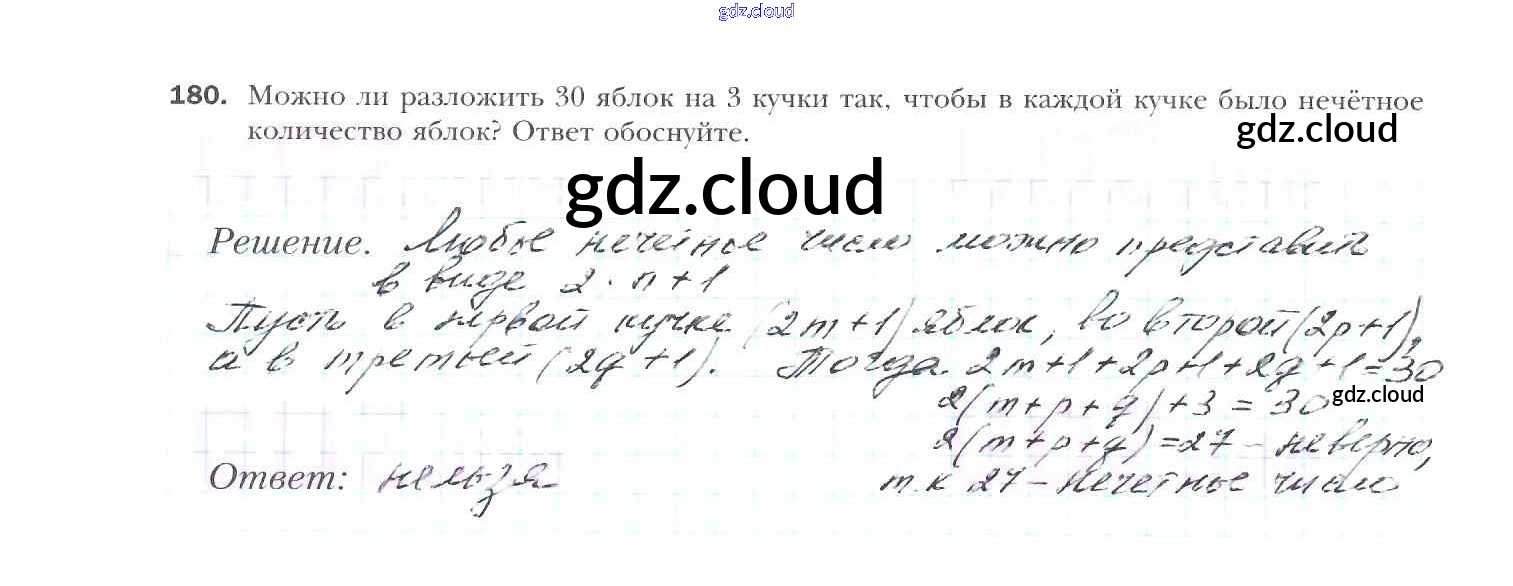 gdz.cloud
180. Можно ли разложить 30 яблок на 3 кучки так, чтобы в каждой кучке было нечётное
количество яблок? Ответ обоснуйте.
gdz.cloud
gdz.cloud
Решение. Любое нечетное число можно представить
в виде 2 · n + 1
Пусть в первой кучке (2m+1) яблок, во второй (2p+1),
а в третьей (2q+1). Тогда. 2m+1+2p+1+2q+1=30
2(m+p+q)+3 = 30
gdz.cloud
2(m+p+q)=27 – неверно,
Ответ: нельзя
т.к 27 – нечетное число